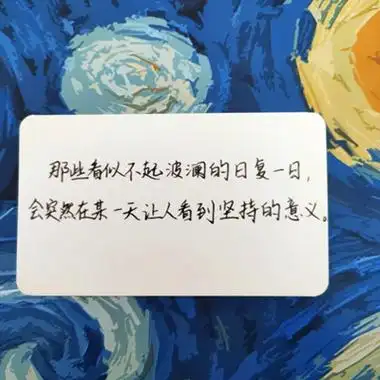 那些看似不起波澜的日复一日，
会突然在某一天让人看到坚持的意义。